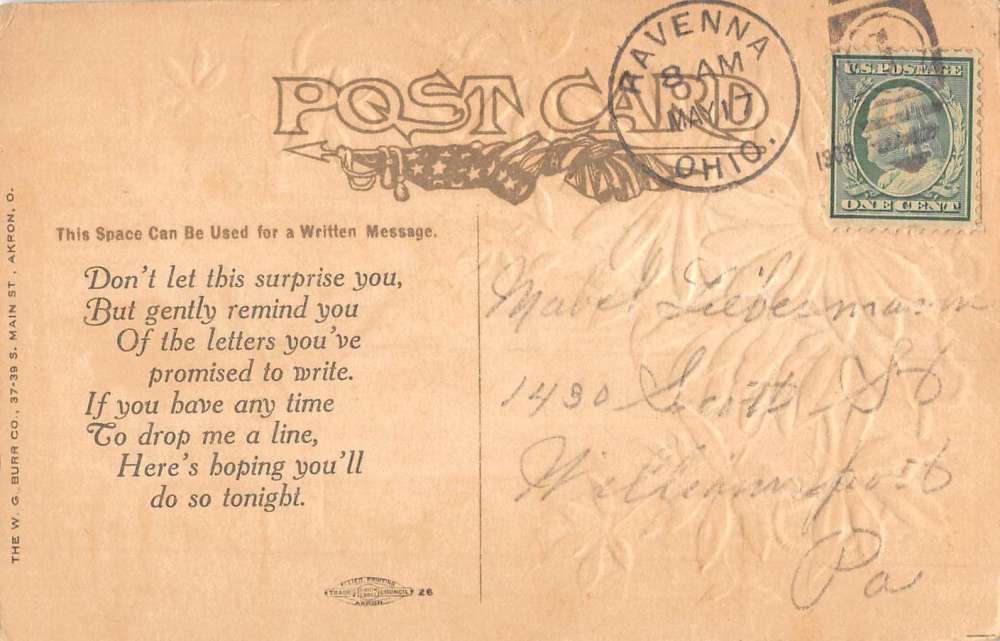 POST CARD
RAVENNA
8 AM
MAY 17
1909
OHIO.
U.S. POSTAGE
ONE CENT
This Space Can Be Used for a Written Message.
Don't let this surprise you,
But gently remind you
Of the letters you've
promised to write.
If you have any time
To drop me a line,
Here's hoping you'll
do so tonight.
Mabel Lieberman
1430 Scott St
Williamsport
Pa
THE W. G. BURR CO., 37-39 S. MAIN ST., AKRON, O.
ALLIED PRINTING
TRADES UNION LABEL COUNCIL 26
AKRON